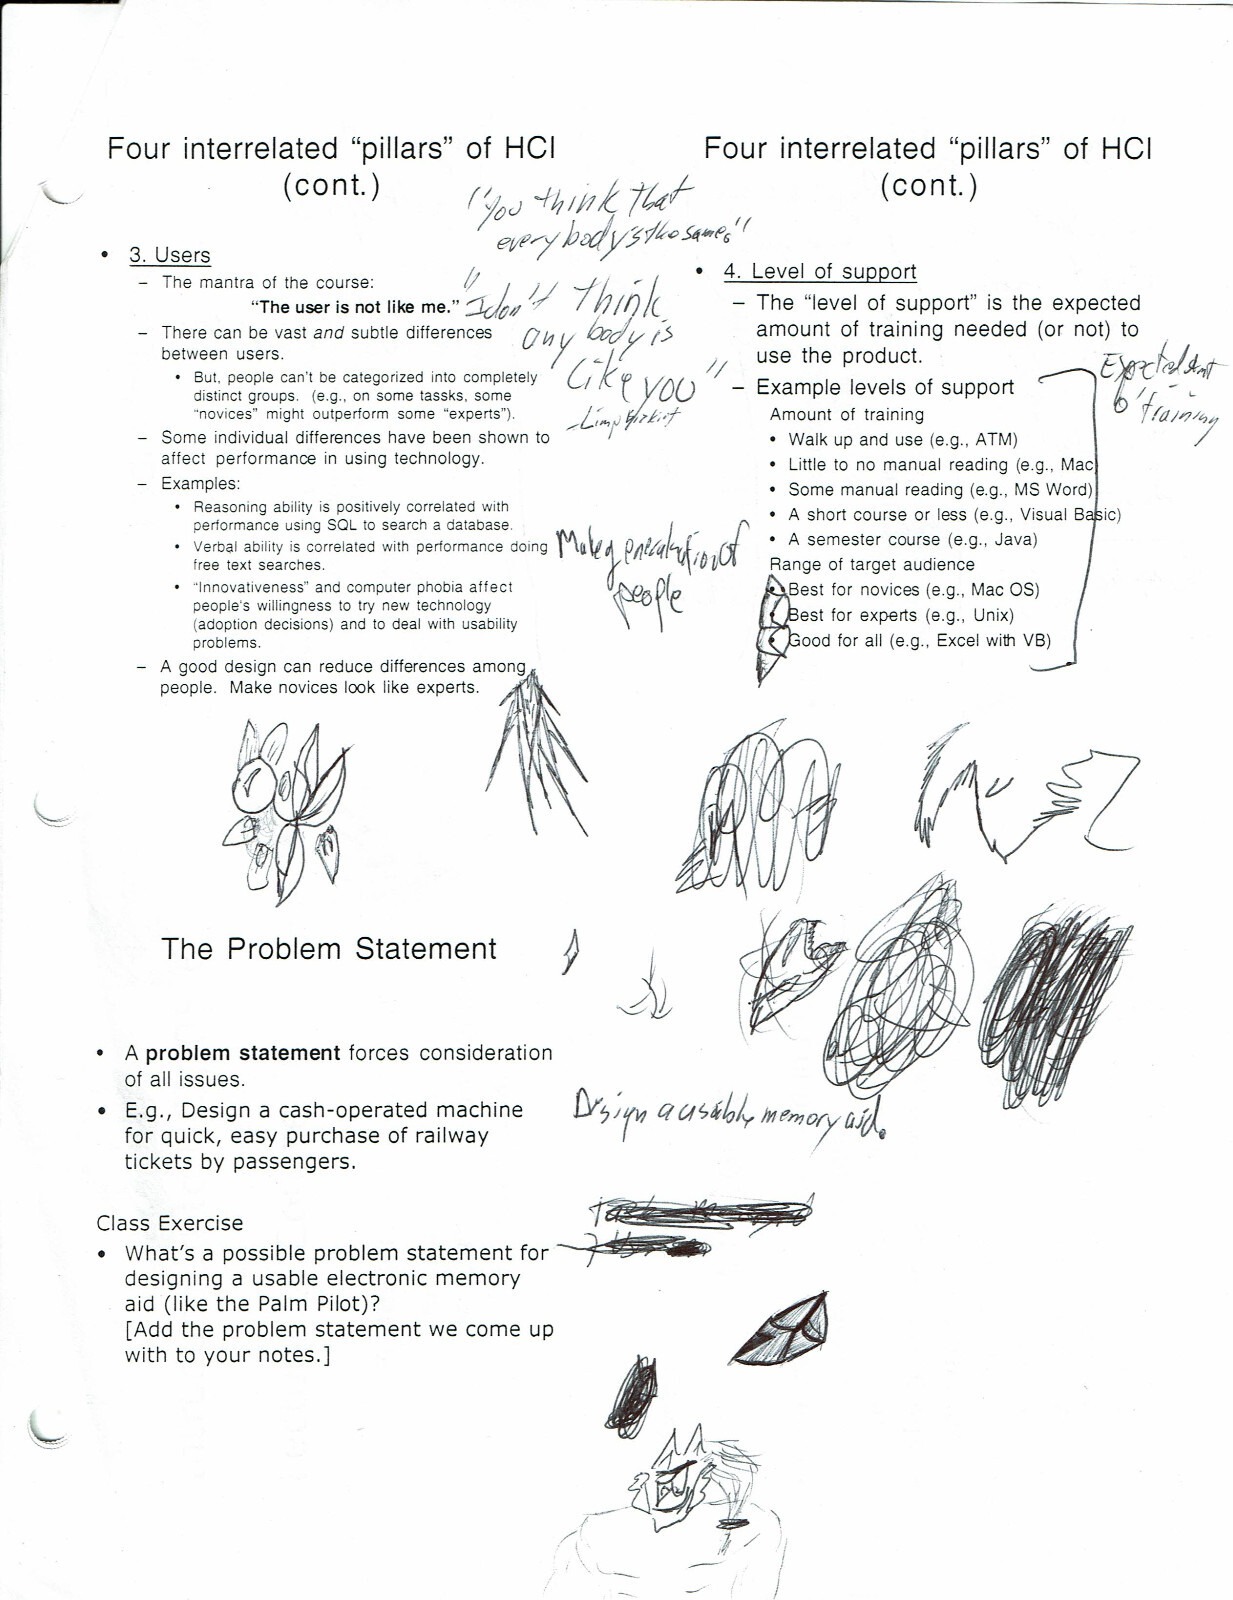 Four interrelated “pillars” of HCI
(cont.)
• 3. Users
– The mantra of the course:
“The user is not like me.”
– There can be vast and subtle differences
between users.
• But, people can’t be categorized into completely
distinct groups. (e.g., on some tassks, some
“novices” might outperform some “experts”).
– Some individual differences have been shown to
affect performance in using technology.
– Examples:
• Reasoning ability is positively correlated with
performance using SQL to search a database.
• Verbal ability is correlated with performance doing
free text searches.
• “Innovativeness” and computer phobia affect
people’s willingness to try new technology
(adoption decisions) and to deal with usability
problems.
– A good design can reduce differences among
people. Make novices look like experts.
"You think that
everybody's the same"
"I don't think
any body is
like you"
- Limp Bizkit
people
Four interrelated “pillars” of HCI
(cont.)
• 4. Level of support
– The “level of support” is the expected
amount of training needed (or not) to
use the product.
– Example levels of support
Amount of training
• Walk up and use (e.g., ATM)
• Little to no manual reading (e.g., Mac
• Some manual reading (e.g., MS Word)
• A short course or less (e.g., Visual Basic)
• A semester course (e.g., Java)
Range of target audience
• Best for novices (e.g., Mac OS)
• Best for experts (e.g., Unix)
• Good for all (e.g., Excel with VB)
Expected
training
The Problem Statement
• A problem statement forces consideration
of all issues.
• E.g., Design a cash-operated machine
for quick, easy purchase of railway
tickets by passengers.
Design a usable memory aid.
Class Exercise
• What’s a possible problem statement for
designing a usable electronic memory
aid (like the Palm Pilot)?
[Add the problem statement we come up
with to your notes.]